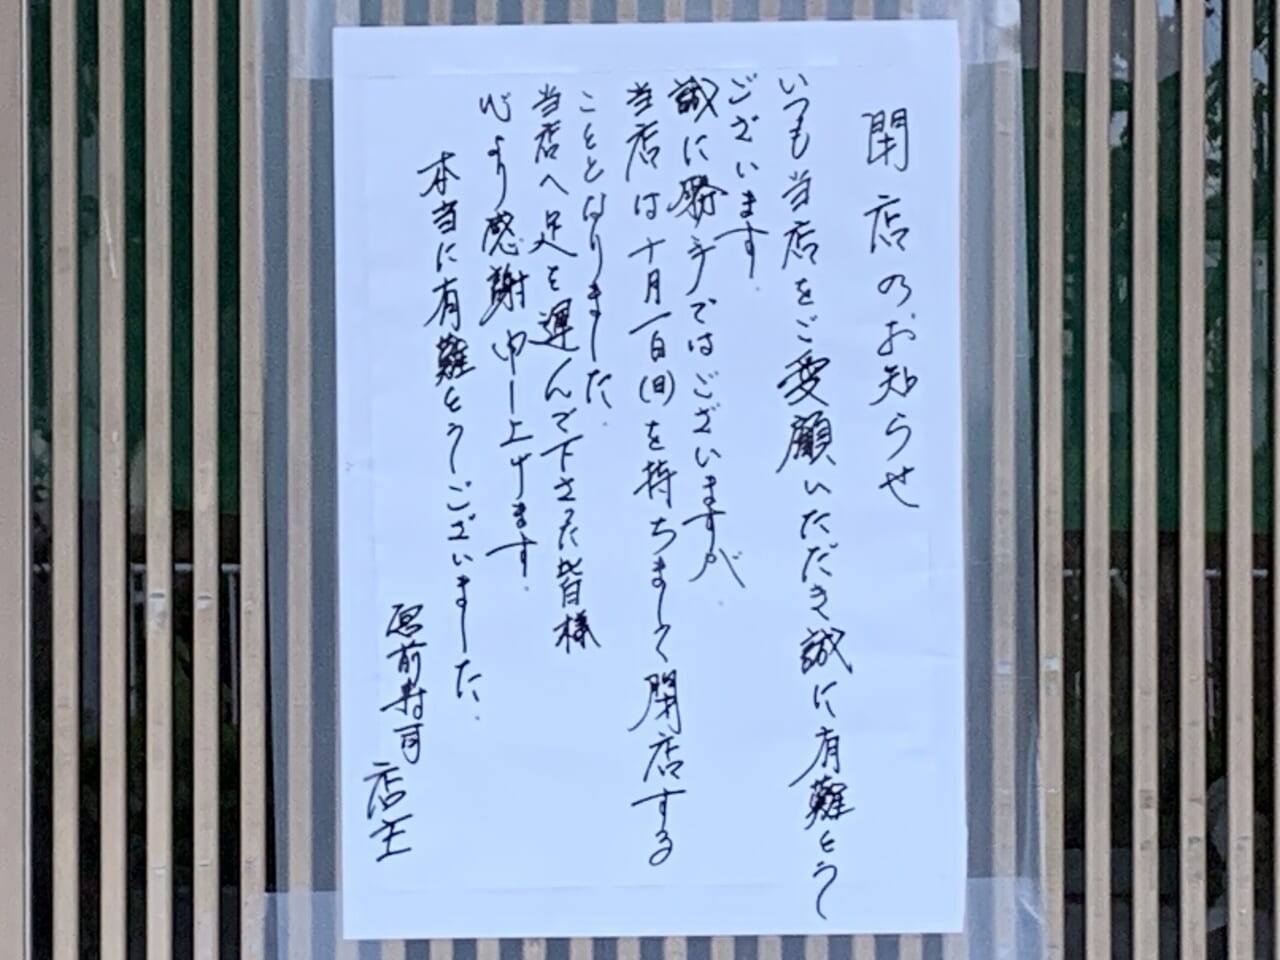 閉店のお知らせ
いつも当店をご愛顧いただき誠に有難とう
ございます.
誠に勝手ではございますが.
当店は十月一日(日)を持ちまして閉店する
こととなりました.
当店へ足を運んで下さった皆様
心より感謝申し上げます.
本当に有難とうございました.
前寿司
店主